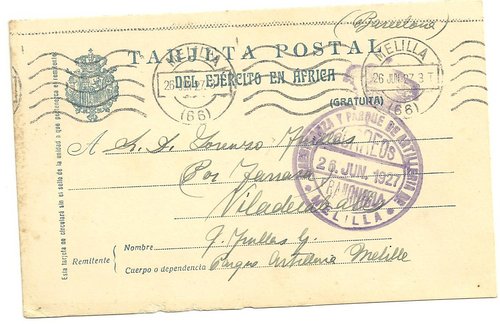 (Barcelona)
TARJETA POSTAL
DEL EJÉRCITO EN ÁFRICA
(GRATUITA)
MELILLA
26 JUN. 27 3 T
(66)
MELILLA
26 JUN. 27
(66)
A S. D. Lorenzo
Por Tarrasa
Viladecaballs
MAESTRANZA Y PARQUE DE ARTILLERIA DE MELILLA
CORREOS
26. JUN. 1927
FRANQUICIA
Esta tarjeta no circulará sin el sello de la unidad o que pertenezca el remitente
Remitente
Nombre
Cuerpo o dependencia Parque Artilleria Melilla